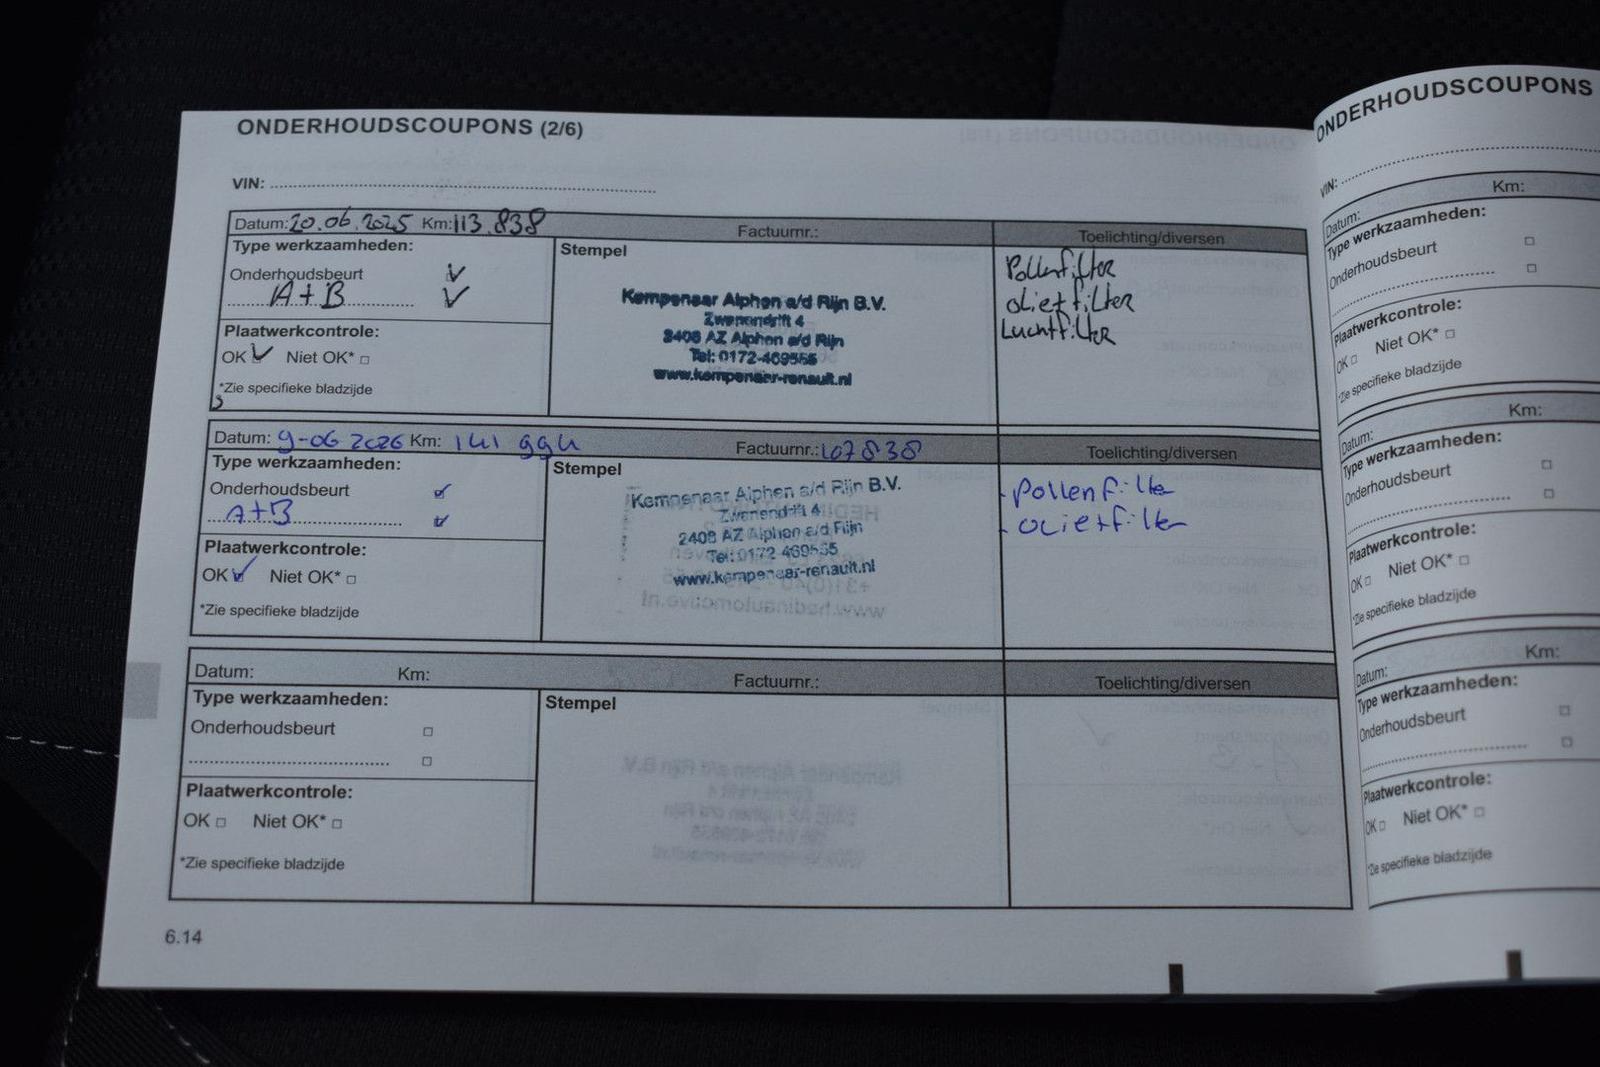 ONDERHOUDSCOUPONS (2/6)
VIN:
Datum: 20.06.2025 Km: 113.838 Factuurnr.: Toelichting/diversen
Type werkzaamheden:
Onderhoudsbeurt
A+B
Plaatwerkcontrole:
OK Niet OK*
*Zie specifieke bladzijde
Stempel
Kempenaar Alphen a/d Rijn B.V.
Zwenendrift 4
2408 AZ Alphen a/d Rijn
Tel: 0172-469555
www.kempenaar-renault.nl
Pollenfilter
oliefilter
Luchtfilter
Datum: 9-06 2026 Km: 141 994 Factuurnr.: 107838 Toelichting/diversen
Type werkzaamheden:
Onderhoudsbeurt
A+B
Plaatwerkcontrole:
OK Niet OK*
*Zie specifieke bladzijde
Stempel
Kempenaar Alphen a/d Rijn B.V.
Zwenendrift 4
2408 AZ Alphen a/d Rijn
Tel: 0172 469555
www.kempenaar-renault.nl
- Pollenfilter
- oliefilter
Datum: Km: Factuurnr.: Toelichting/diversen
Type werkzaamheden:
Onderhoudsbeurt
Plaatwerkcontrole:
OK Niet OK*
*Zie specifieke bladzijde
Stempel
6.14
ONDERHOUDSCOUPONS
VIN:
Datum: Km:
Type werkzaamheden:
Onderhoudsbeurt
Plaatwerkcontrole:
OK Niet OK*
*Zie specifieke bladzijde
Datum: Km:
Type werkzaamheden:
Onderhoudsbeurt
Plaatwerkcontrole:
OK Niet OK*
*Zie specifieke bladzijde
Datum: Km:
Type werkzaamheden:
Onderhoudsbeurt
Plaatwerkcontrole:
OK Niet OK*
*Zie specifieke bladzijde